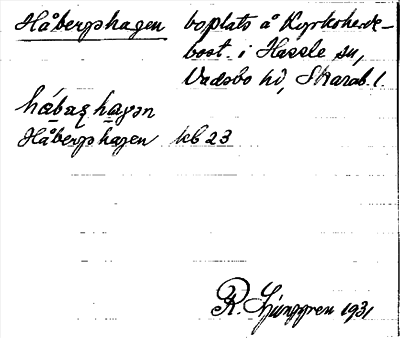 Håbergshagen boplats å Kyrkoherde-
bost. i Hassle sn,
Vadsbo hd, Skarab. l.
hábærs hagən
Håbergshagen kb 23
R. Ljunggren 1931